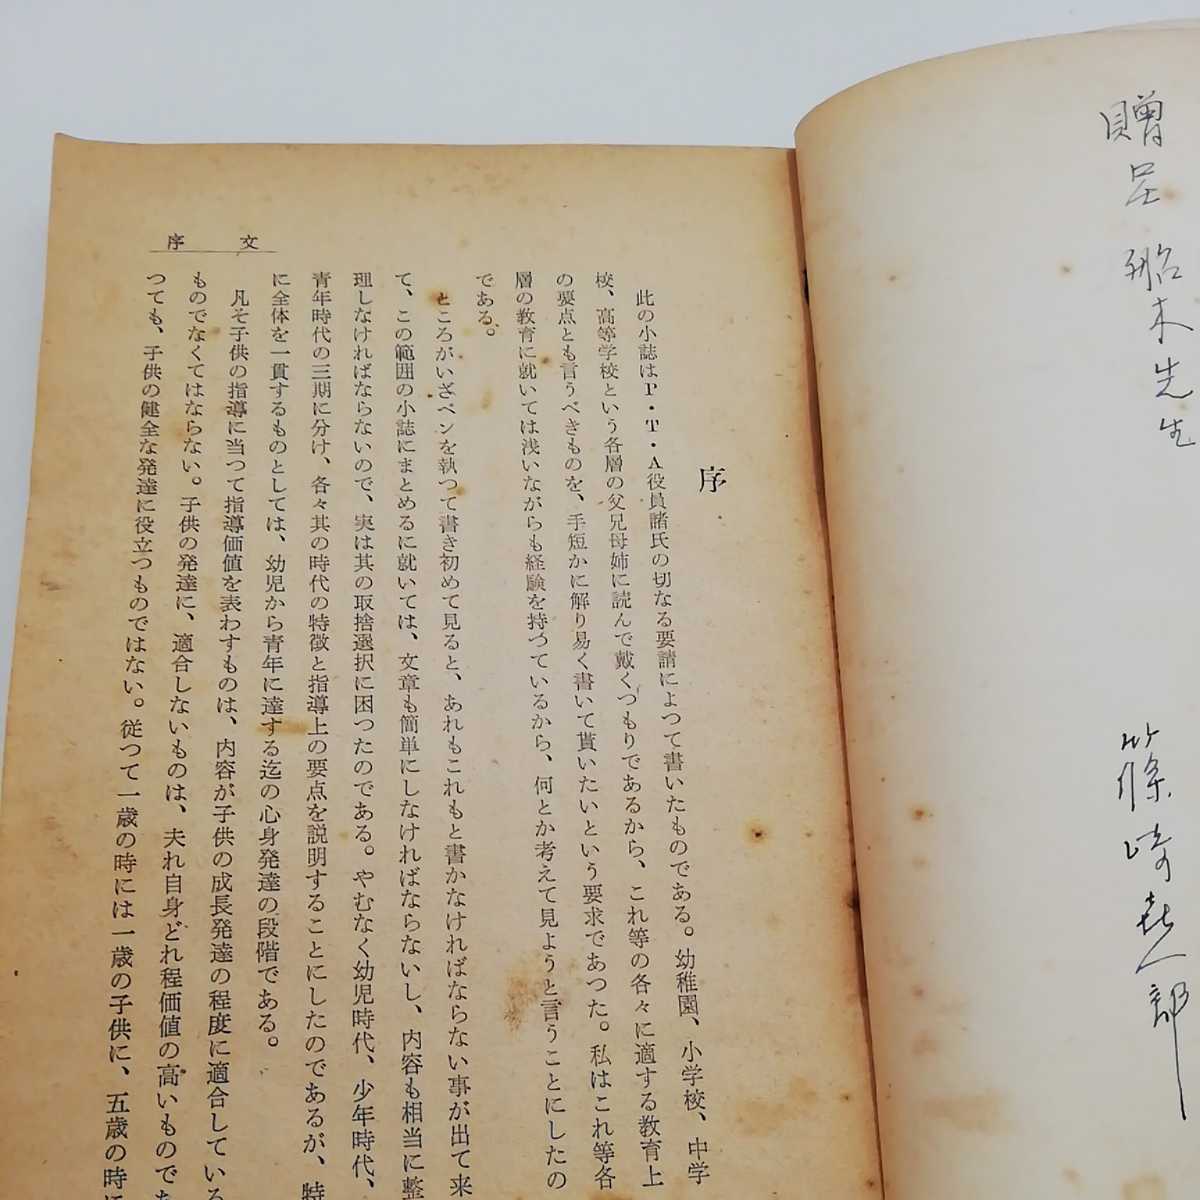 贈呈 船木先生
篠崎喜一郎
序文
序
此の小誌はP・T・A役員諸氏の切なる要請によつて書いたものである。幼稚園、小学校、中学
校、高等学校という各層の父兄母姉に読んで戴くつもりであるから、これ等の各々に適する教育上
の要点とも言うべきものを、手短かに解り易く書いて貰いたいという要求であつた。私はこれ等各
層の教育に就いては浅いながらも経験を持つているから、何とか考えて見ようと言うことにしたの
である。
ところがいざペンを執つて書き初めて見ると、あれもこれもと書かなければならない事が出て来
て、この範囲の小誌にまとめるに就いては、文章も簡単にしなければならないし、内容も相当に整
理しなければならないので、実は其の取捨選択に困つたのである。やむなく幼児時代、少年時代、
青年時代の三期に分け、各々其の時代の特徴と指導上の要点を説明することにしたのであるが、特
に全体を一貫するものとしては、幼児から青年に達する迄の心身発達の段階である。
凡そ子供の指導に当つて指導価値を表わすものは、内容が子供の成長発達の程度に適合している
ものでなくてはならない。子供の発達に、適合しないものは、夫れ自身どれ程価値の高いものであ
つても、子供の健全な発達に役立つものではない。従つて一歳の時には一歳の子供に、五歳の時に